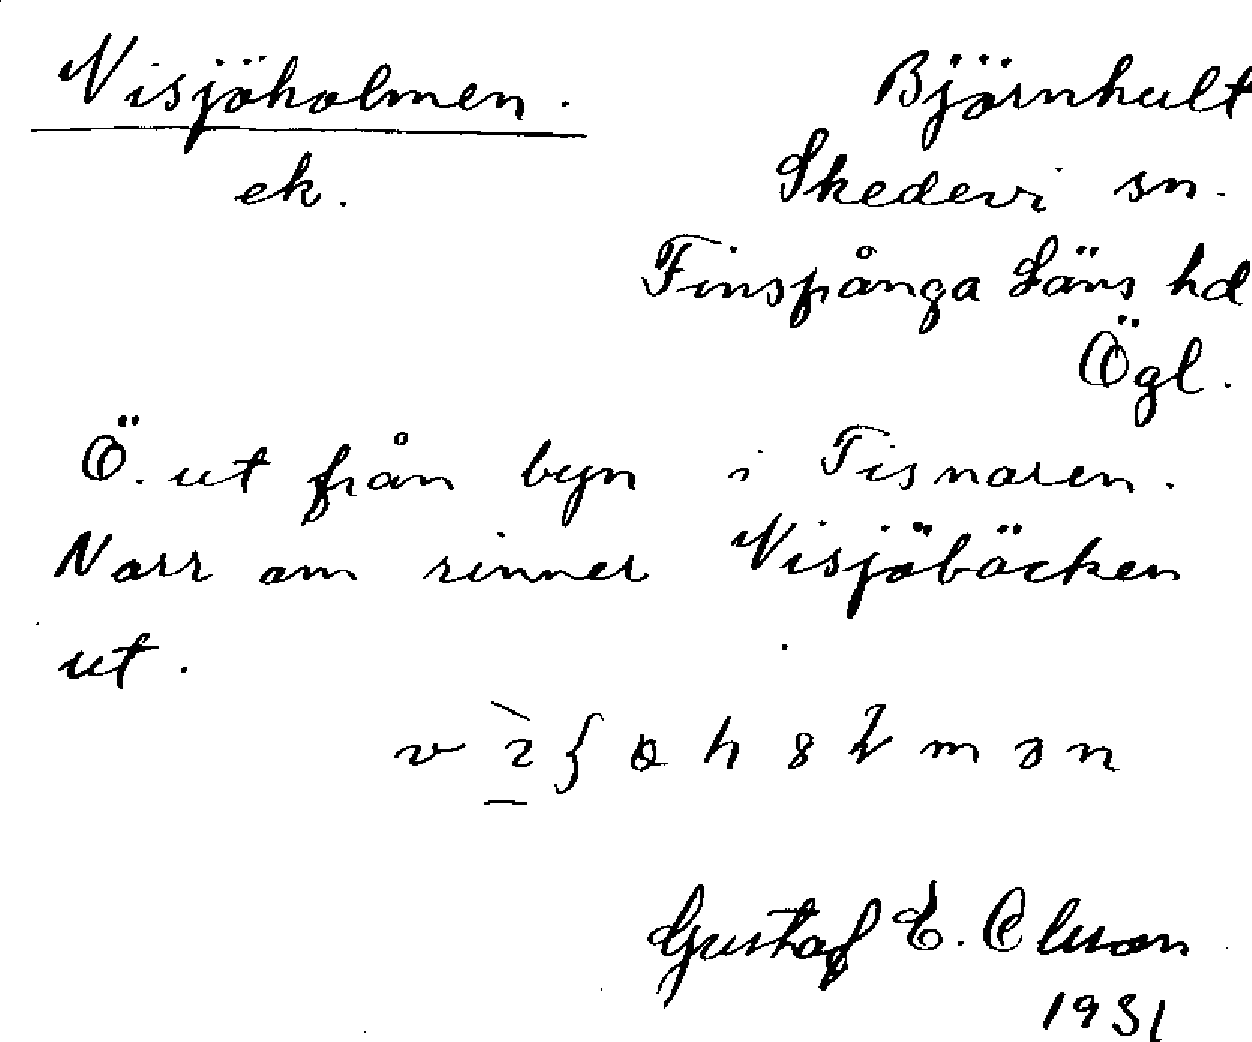 Visjöholmen.
Björnhult
ek.
Skedevi sn.
Finspånga Läns hd
Ögl.
Ö. ut från byn i Tisnaren.
Norr om rinner Visjöbäcken
ut.
Gustaf E. Olsson
1931